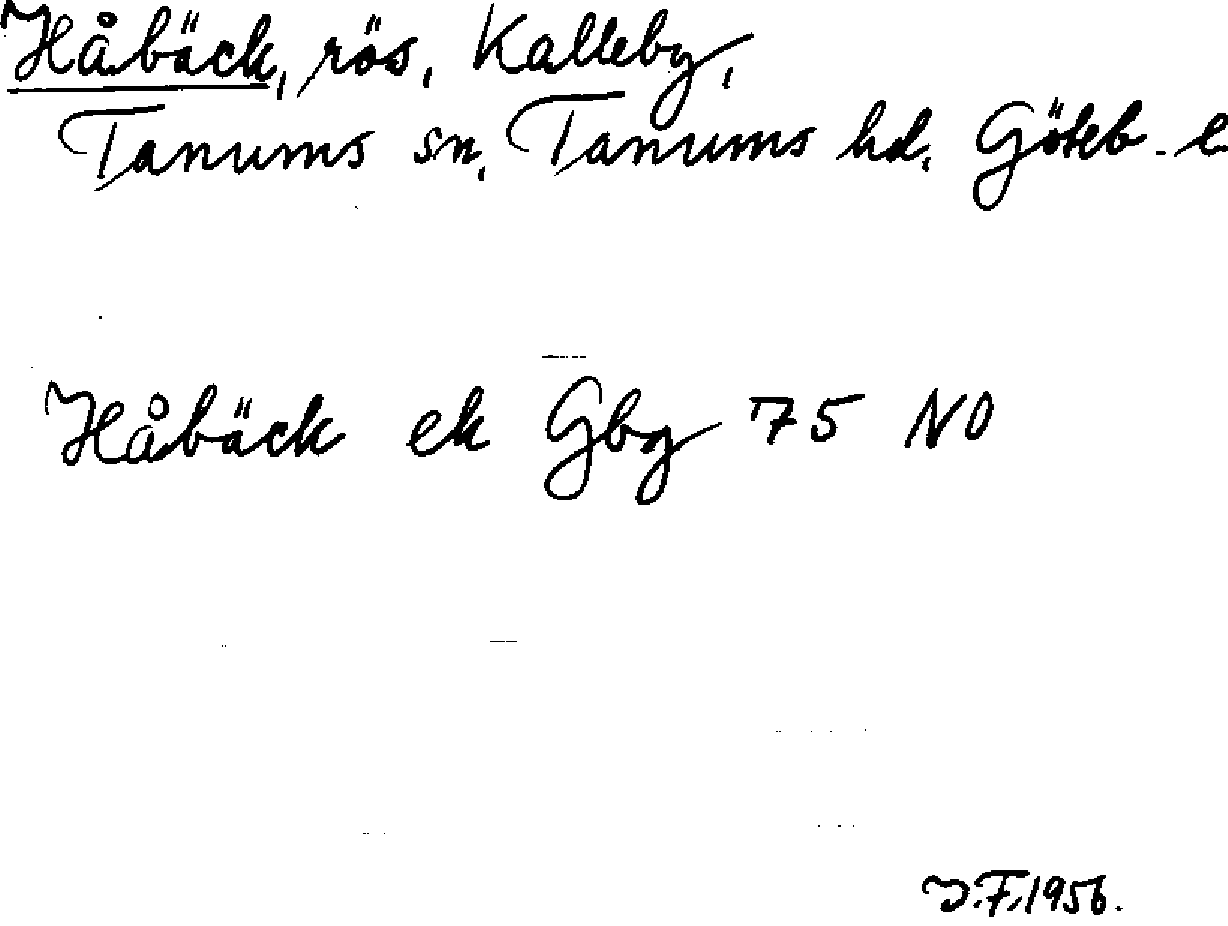 Håbäck, rös, Kalleby,
Tanums sn, Tanums hd. Göteb. l
Håbäck ek Gbg 75 NO
J.F. 1956.